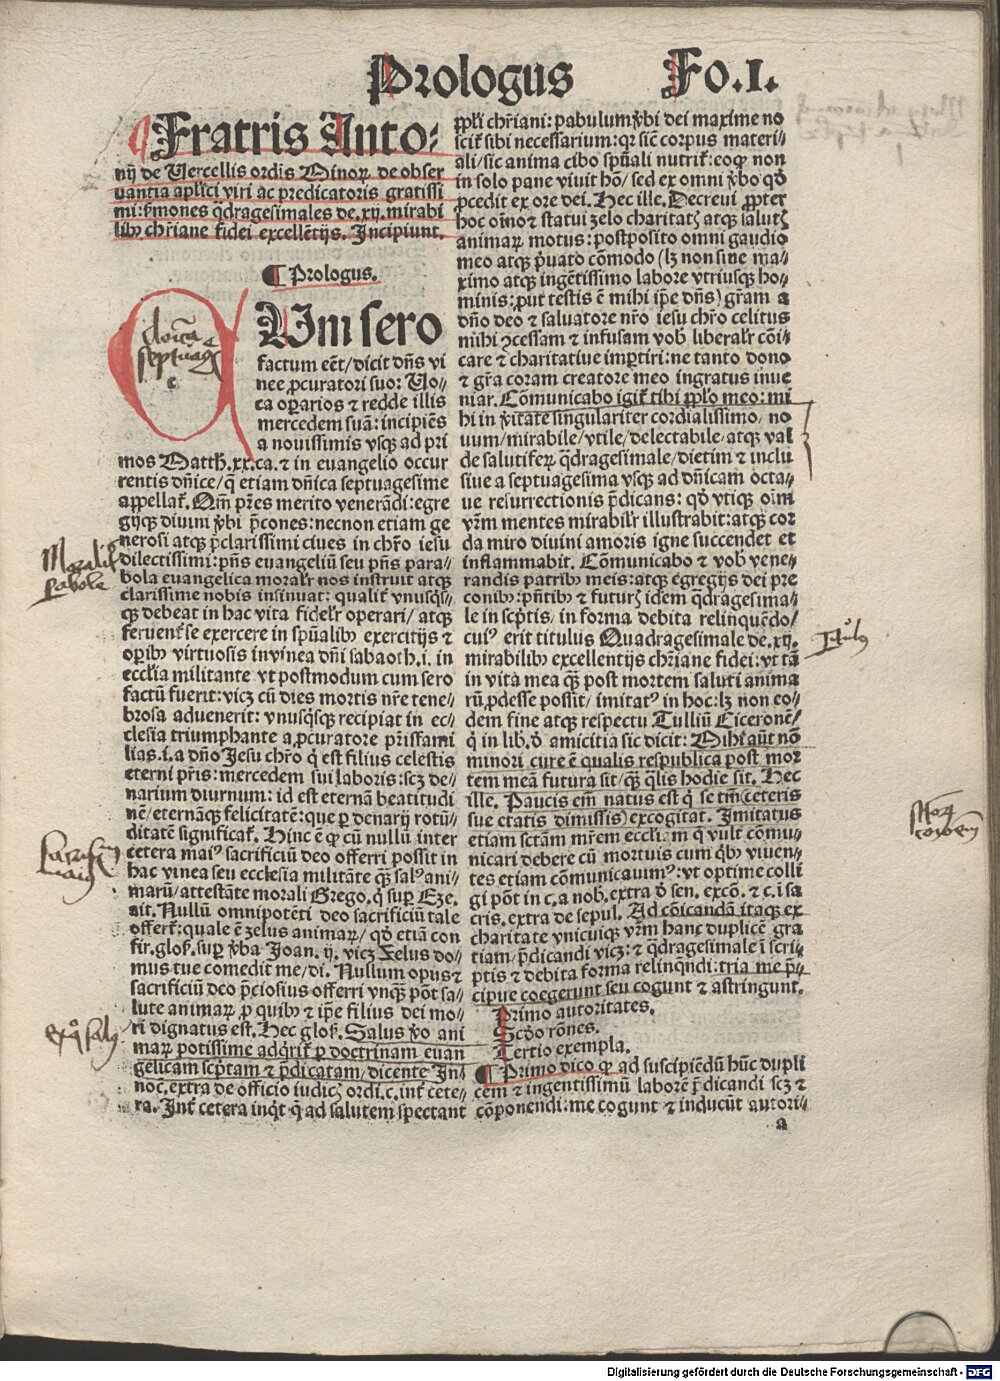 Prologus Fo.I.
Fratris Anto⸗
nij de Uercellis ordīs Minoꝝ de obser
uantia apl̄ici viri ac predicatoris gratissi
mi: ẜmones q̄dragesimales de.xij. mirabi
libꝰ chr̄iane fidei excellētijs. Incipiunt.
¶ Prologus.
Dn̄ica
septuag
Um sero
factum eēt/dicit dn̄s vi
nee ꝓcuratori suo: Uo⸗
ca oꝑarios ⁊ redde illis
mercedem suā: incipiēs
a nouissimis vsqꝫ ad pri
mos Matth.xx.ca.⁊ in euangelio occur
rentis dn̄ice/q̄ etiam dn̄ica septuagesime
appellat̄. Qm̄ pr̄es merito venerādi: egre
gijqꝫ diuini v̄bi p̄cones: necnon etiam ge
nerosi atqꝫ p̄clarissimi ciues in chr̄o iesu
dilectissimi: pn̄s euangeliū seu pn̄s para⸗
bola euangelica moralr̄ nos instruit atqꝫ
clarissime nobis insinuat: qualit̄ vnusqs⸗
qꝫ debeat in hac vita fidelr̄ operari/ atqꝫ
feruent̄ se exercere in spūalibꝰ exercitijs ⁊
oꝑibꝰ virtuosis in vinea dn̄i sabaoth.i. in
eccl̄ia militante vt postmodum cum sero
factū fuerit: vicꝫ cū dies mortis nr̄e tene⸗
brosa aduenerit: vnusqsqꝫ recipiat in ec⸗
clesia triumphante a ꝓcuratore pr̄isfami
lias.i.a dn̄o Jesu chr̄o q̄ est filius celestis
eterni pr̄is: mercedem sui laboris: scꝫ de⸗
narium diurnum: id est eternā beatitudi
nē/eternāqꝫ felicitatē: que ꝑ denarij rotū⸗
ditatē significat̄. Hinc ē ꝙ cū nullū inter
cetera maiꝰ sacrificiū deo offerri possit in
hac vinea seu ecclesia militāte qꝫ salꝰ ani⸗
marū/attestāte morali Grego. q̄ suꝑ Eze.
ait. Nullū omnipotēti deo sacrificiū tale
offert̄: quale ē zelus animaꝝ/ qd̄ etiā con
fir.glos̄.suꝑ v̄ba Joan. ij. vicꝫ Zelus do⸗
mus tue comedit me/di. Nullum opus ⁊
sacrificiū deo p̄ciosius offerri vnqꝫ pōt sa⸗
lute animaꝝ ꝓ quibꝰ ⁊ ip̄e filius dei mo⸗
ri dignatus est. Hec glos̄. Salus v̄o ani
maꝝ potissime adqrit̄ ꝑ doctrinam euan
gelicam scp̄tam ⁊ p̄dicatam/dicente In⸗
noc̄.extra de officio iudic̄ ordi.c.int̄ cete⸗
ra. Int̄ cetera inqt ꝙ ad salutem spectant
ppl̄i chr̄iani: pabulum v̄bi dei maxime no
scit̄ sibi necessarium: qꝛ sic̄ corpus materi⸗
ali/sic anima cibo spūali nutrit̄: eoqꝫ non
in solo pane viuit hō/ sed ex omni v̄bo qd̄
ꝓcedit ex ore dei. Hec ille. Decreui ꝓpter
hoc oīno ⁊ statui zelo charitatꝭ atqꝫ salutꝭ
animaꝝ motus: postposito omni gaudio
meo atqꝫ pͥuato cōmodo (lꝫ non sine ma⸗
ximo atqꝫ ingētissimo labore vtriusqꝫ ho⸗
minis: ꝓut testis ē mihi ip̄e dn̄s) gr̄am a
dn̄o deo ⁊ saluatore nr̄o iesu chr̄o celitus
mihi ꝯcessam ⁊ infusam vob̄ liberalr̄ cōi⸗
care ⁊ charitatiue imꝑtiri: ne tanto dono
⁊ gr̄a coram creatore meo ingratus inue
niar. Cōmunicabo igit̄ tibi ppl̄o meo: mi
hi in v̄itate singulariter cordialissimo/ no
uum/mirabile/vtile/delectabile/atqꝫ val
de salutiferꝝ q̄dragesimale/dietim ⁊ inclu
siue a septuagesima vsqꝫ ad dn̄icam octa⸗
ue resurrectionis p̄dicans: qd̄ vtiqꝫ oīm
vr̄m mentes mirabilr̄ illustrabit: atqꝫ cor
da miro diuini amoris igne succendet et
inflammabit. Cōmunicabo ⁊ vob̄ vene⸗
randis patribꝰ meis: atqꝫ egregijs dei pre
conibꝰ: pn̄tibꝰ ⁊ futurꝭ idem q̄dragesima⸗
le in scp̄tis/ in forma debita relinquēdo/
cuiꝰ erit titulus Quadragesimale de.xij.
mirabilibꝰ excellentijs chr̄iane fidei: vt tā
in vita mea qꝫ post mortem saluti anima
rū ꝓdesse possit/ imitatꝰ in hoc: lꝫ non eo⸗
dem fine atqꝫ respectu Tulliū Ciceronē/
q̄ in lib.d̄ amicitia sic dicit: Mihi aūt nō
minori cure ē qualis respublica post mor
tem meā futura sit/ qꝫ q̄lis hodie sit. Hec
ille. Paucis em̄ natus est q̄ se tm̄ (ceteris
sue etatis dimissis) excogitat. Imitatus
etiam sctām mr̄em eccl̄iam q̄ vult cōmu⸗
nicari debere cū mortuis cum qbꝰ viuen⸗
tes etiam cōmunicauimꝰ: vt optime colli
gi pōt in c.a nob.extra d̄ sen. excō. ⁊ c. i sa
cris. extra de sepul. Ad cōicandā itaqꝫ ex
charitate vnicuiqꝫ vr̄m hanc duplicē gra
tiam/p̄dicandi vicꝫ: ⁊ q̄dragesimale ī scri⸗
ptis ⁊ debita forma relinqn̄di: tria me p̄n⸗
cipue coegerunt seu cogunt ⁊ astringunt.
Primo autoritates.
Scd̄o rōnes.
Tertio exempla.
¶ Primo dico ꝙ ad suscipiēdū hūc dupli
cem ⁊ ingentissimū laborē p̄dicandi scꝫ ⁊
cōponendi: me cogunt ⁊ inducūt autori⸗
a
Moralis
parabole
Titulꝰ
Digitalisierung gefördert durch die Deutsche Forschungsgemeinschaft - DFG